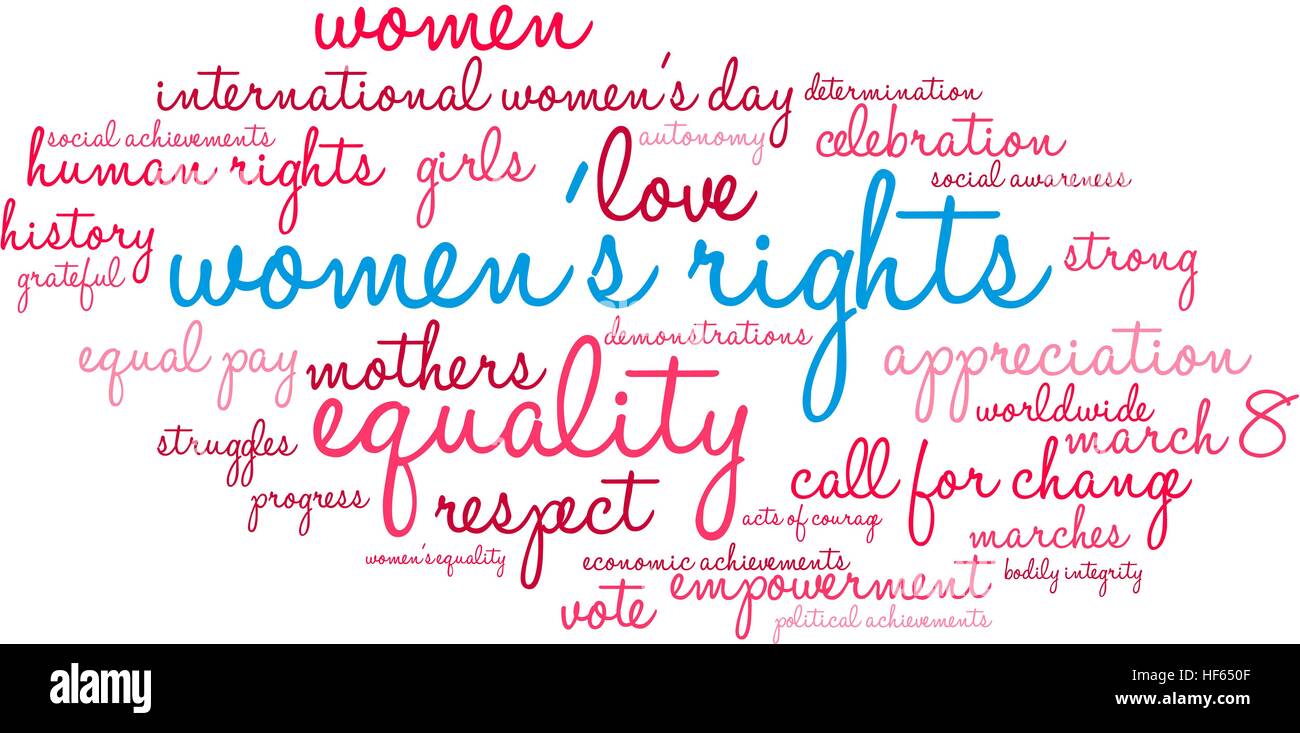 women
international women's day
determination
social achievements
autonomy
celebration
human rights
girls
'love
social awareness
history
women's rights
strong
grateful
demonstrations
equal pay
mothers
appreciation
equality
worldwide
march 8
struggles
call for change
progress
respect
acts of courage
marches
women's equality
economic achievements
bodily integrity
empowerment
vote
political achievements
alamy
Image ID: HF650F
www.alamy.com